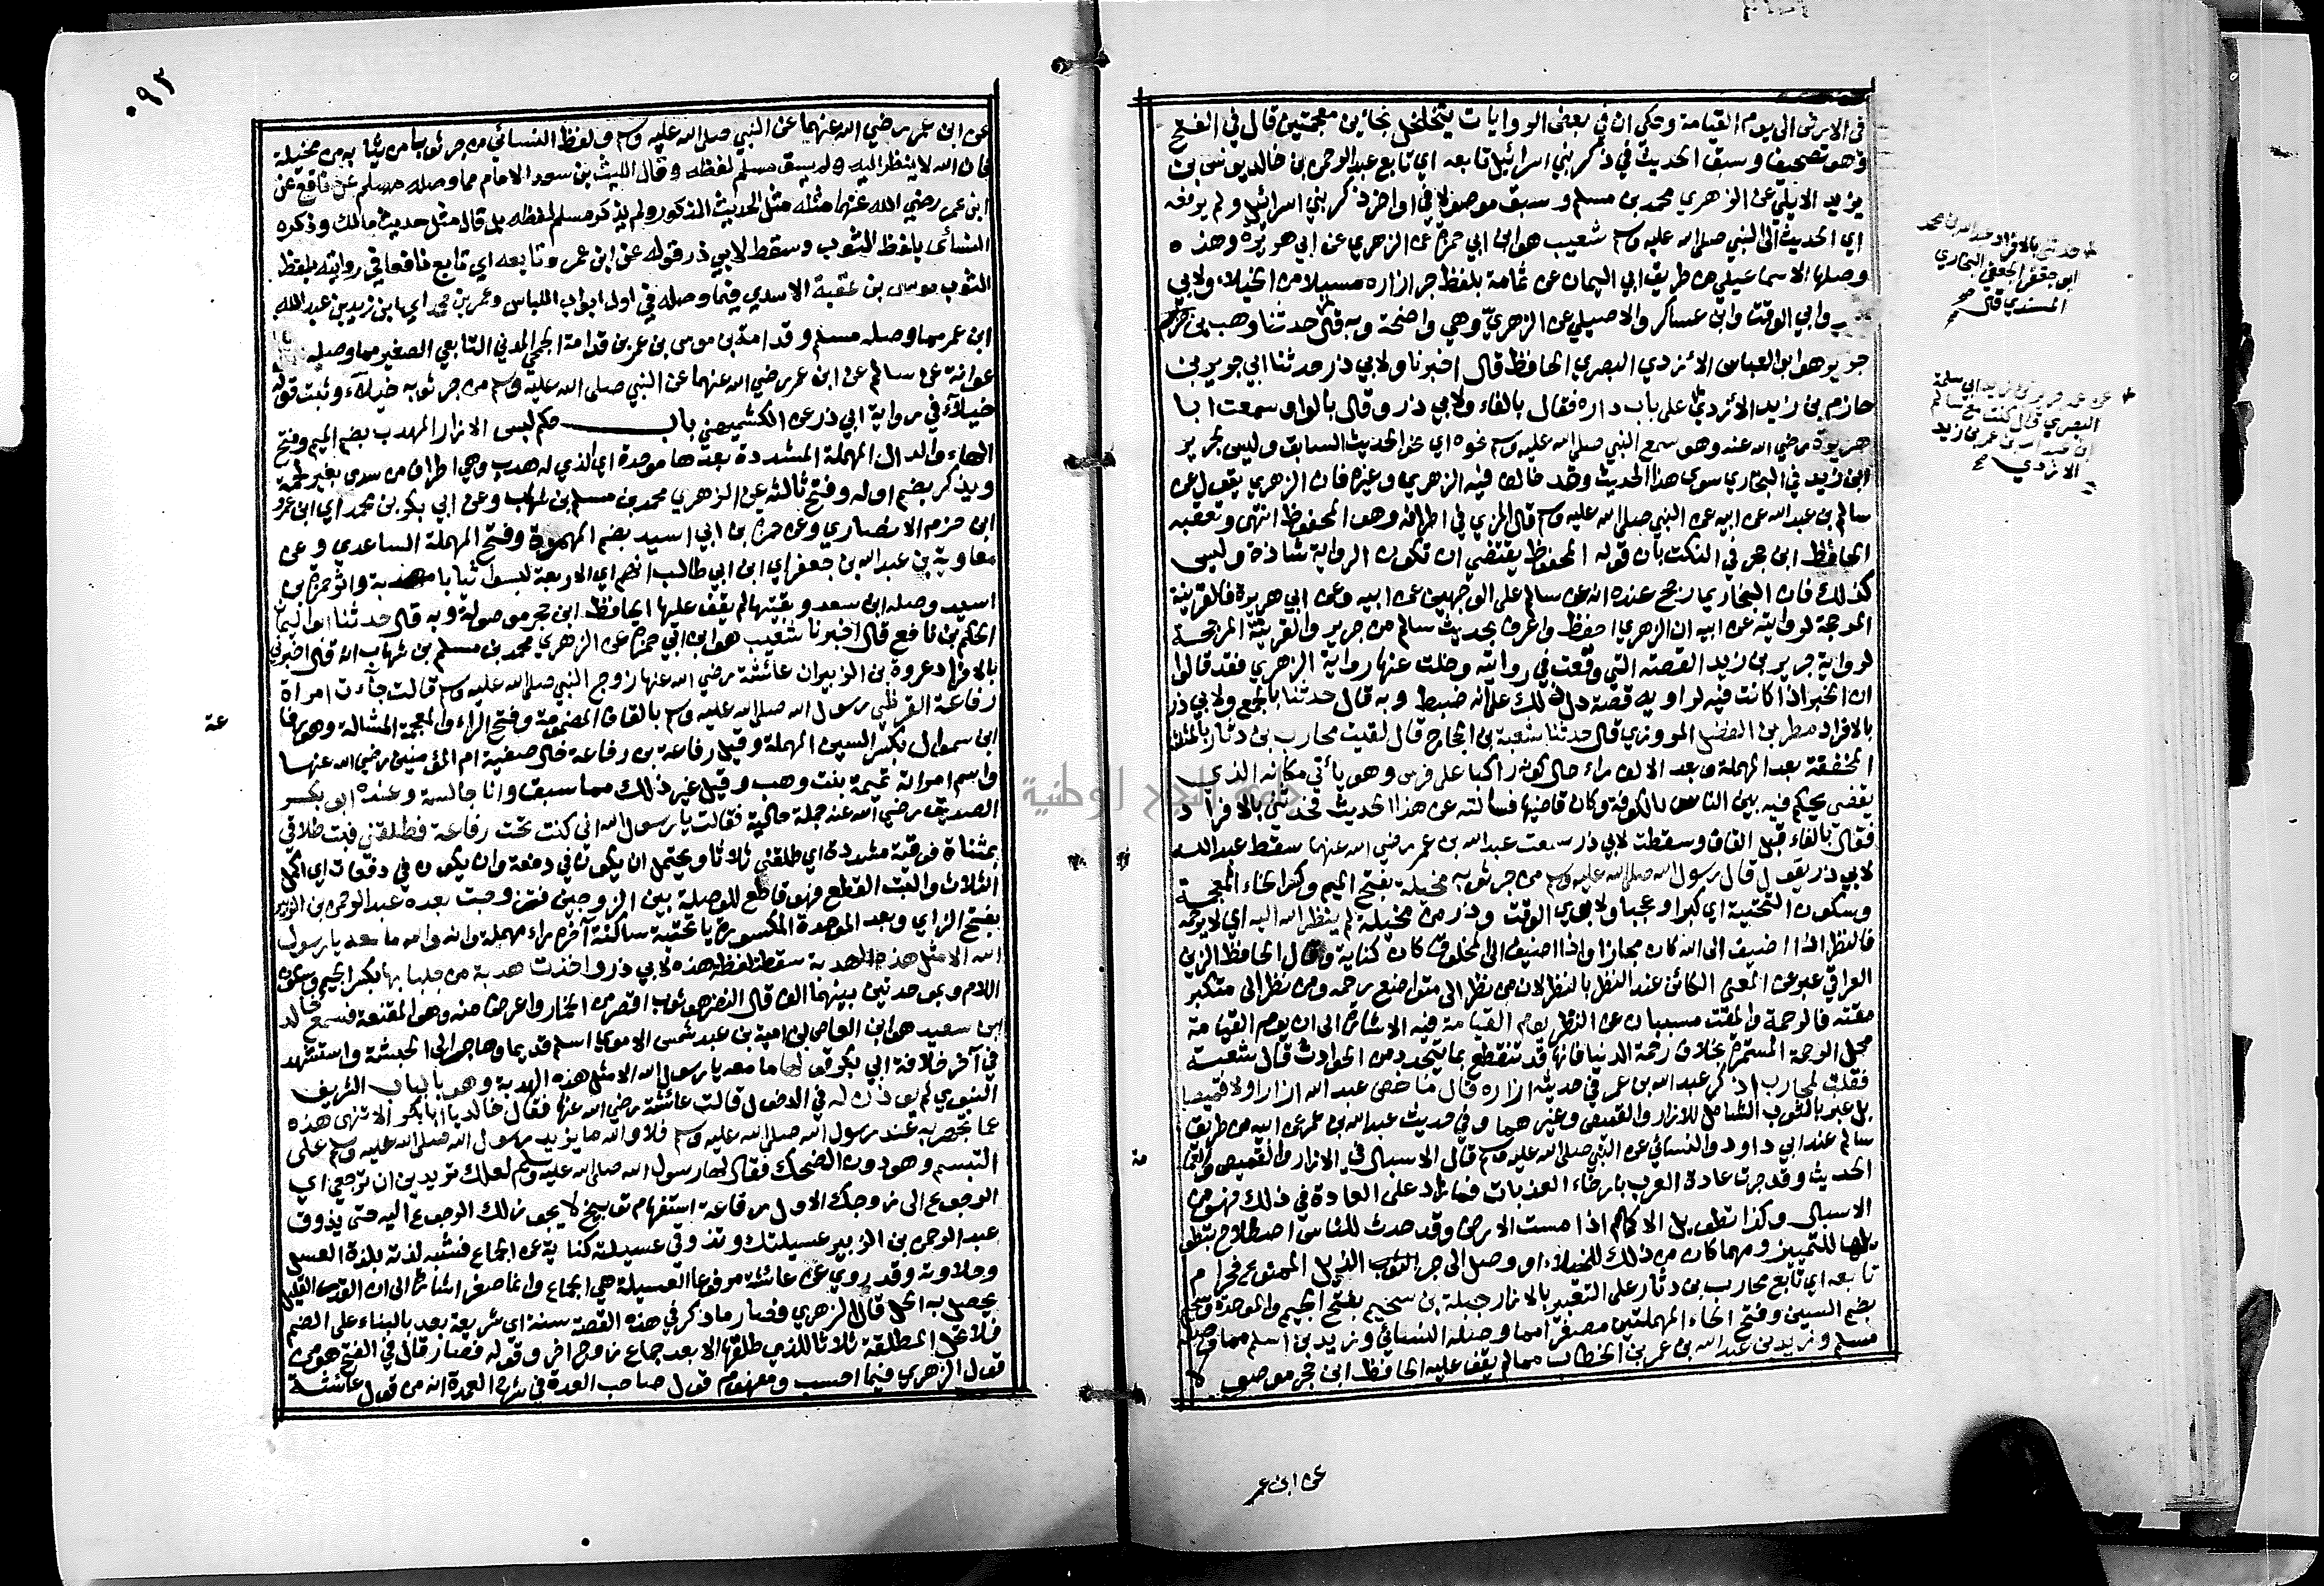 في الارض الى يوم القيامة وحكي ان في بعض الروايات يتخلخل بخائين معجمتين قال في الفتح
وهو تصحيف وسبق الحديث في ذكر بني اسرائيل تابعه اي تابع عبد الرحمن بن خالد يونس بن
يزيد الايلي عن الزهري محمد بن مسلم وسبق موصولا في اواخر ذكر بني اسرائيل ولم يرفعه
اي الحديث الى النبي صلى الله عليه وسلم شعيب هو ابن ابي حمزة عن الزهري عن ابي هريرة وهذه
وصلها الاسماعيلي من طريق ابي اليمان عن بلفظ جر ازاره مسبلا من الخيلاء ولابي
وابي الوقت وابن عساكر والاصيلي عن الزهري وهي واضحة وبه قال حدثنا وهب بن جرير
جرير هو ابن العباس الازدي البصري الحافظ قال اخبرنا ولابي ذر حدثنا ابي جرير بن
حازم بن زيد الازدي على باب داره فقال بالفاء ولابي ذر وقال بالواو سمعت ابا
هريرة رضي الله عنه وهو سمع النبي صلى الله عليه وسلم نحوه اي نحو الحديث السابق وليس لجرير
ابن زيد في البخاري سوى هذا الحديث وقد خالف فيه الزهري وغيره فان الزهري يقول عن
سالم بن عبد الله عن ابيه عن النبي صلى الله عليه وسلم قال المزي في اطرافه وهو المحفوظ انتهى وتعقبه
الحافظ ابن حجر في النكت بان قوله المحفوظ يقتضي ان تكون الرواية شاذة وليس
كذلك فان البخاري رجح عنده انه عن سالم على الوجهين عن ابيه وعن ابي هريرة فالقرينة
المرجحة لروايته عن ابيه ان الزهري احفظ واعرف بحديث سالم من جرير والقرينة المرجحة
لرواية جرير بن زيد القصة التي وقعت في روايته وخلت عنها رواية الزهري فقد قالوا
ان الخبر اذا كانت فيه لراويه قصة دل ذلك على انه ضبط وبه قال حدثنا بالجمع ولابي ذر
بالافراد مطر بن الفضل المروزي قال حدثنا شعبة بن الحجاج قال لقيت محارب بن دثار بالمثلثة
المخففة بعد المهملة وبعد الالف راء حال كونه راكبا على فرس وهو يأتي مكانه الذي
يقضي يحكم فيه بين الناس بالكوفة وكان قاضيها فسألته عن هذا الحديث فحدثني بالافراد
فقال بالفاء قبل القاف وسقطت لابي ذر سمعت عبد الله بن عمر رضي الله عنهما سقط عبد الله
لابي ذر يقول قال رسول الله صلى الله عليه وسلم من جر ثوبه مخيلة بفتح الميم وكسر الخاء المعجمة
وسكون التحتية اي كبرا وعجبا ولابوي الوقت وذر من مخيلة لم ينظر الله اليه اي لا يرحمه
فالنظر اذا اضيف الى الله كان مجازا واذا اضيف الى المخلوق كان كناية وقال الحافظ الزين
العراقي عبر عن المعنى الكائن عند النظر بالنظر لان من نظر الى متواضع رحمه ومن نظر الى متكبر
مقته فالرحمة والمقت مسببان عن النظر يوم القيامة فيه الاشارة الى ان يوم القيامة
محل الرحمة المستمرة بخلاف رحمة الدنيا فانها قد تنقطع بما يتجدد من الحوادث قال شعبة
فقلت لمحارب اذكر عبد الله بن عمر في حديثه ازاره قال ما خص عبد الله ازارا ولا قميصا
بل عبر بالثوب الشامل للازار والقميص وغيرهما وفي حديث عبد الله بن عمر عن ابيه من طريق
سالم عند ابي داود والنسائي عن النبي صلى الله عليه وسلم قال الاسبال في الازار والقميص والعمامة
الحديث وقد جرت عادة العرب بارخاء العذبات فما زاد على العادة في ذلك فهو من
الاسبال وكذا تطويل الاكمام اذا مست الارض وقد حدث للناس اصطلاح بتطويلها
للتمييز ومهما كان من ذلك للخيلاء او وصل الى جر الثوب الذيل الممنوع فحرام
تابعه اي تابع محارب بن دثار على التعبير بالازار جبلة بن سحيم بفتح الجيم والموحدة وسحيم
بضم السين وفتح الحاء المهملتين مصغرا مما وصله النسائي وزيد بن اسلم مما وصله
مسلم وزيد بن عبد الله بن عمر بن الخطاب مما لم يقف عليه الحافظ ابن حجر موصولا
حدثني بالافراد عبد الله بن محمد
ابن جعفر الجعفي البخاري
المسندي قال صح
عن عمه جرير بن زيد ابي سلمة
البصري قال كنت مع سالم
ابن عبد الله بن عمر
الازدي صح
عن ابن عمر
٩٢
عن ابن عمر رضي الله عنهما عن النبي صلى الله عليه وسلم ولفظ النسائي من جر ثوبا من ثيابه من مخيلة
فان الله لا ينظر اليه ولم يسق مسلم لفظه وقال الليث بن سعد الامام مما وصله مسلم عن نافع عن
ابن عمر رضي الله عنهما مثله مثل الحديث المذكور ولم يذكر مسلم لفظه بل قال مثل حديث مالك وذكره
النسائي بلفظ الثوب وسقط لابي ذر قوله عن ابن عمر وتابعه اي تابع نافعا في روايته بلفظ
الثوب موسى بن عقبة الاسدي فيما وصله في اول ابواب اللباس وعمر بن محمد اي ابن زيد بن عبد الله
ابن عمر مما وصله مسلم وقدامة بن موسى بن عمر بن قدامة الجمحي المدني التابعي الصغير مما وصله
عوانة عن سالم عن ابن عمر رضي الله عنهما عن النبي صلى الله عليه وسلم من جر ثوبه خيلاء وثبت قوله
خيلاء في رواية ابي ذر عن الكشميهني باب حكم لبس الازار المهدب بضم الميم وفتح
الهاء والدال المهملة المشددة بعدها موحدة اي الذي له هدب وهي اطراف من سدى بغير لحمة
ويذكر بضم اوله وفتح ثالثه عن الزهري محمد بن مسلم بن شهاب وعن ابي بكر بن محمد اي ابن عمرو
ابن حزم الانصاري وعن حمزة بن ابي اسيد بضم الهمزة وفتح المهملة الساعدي وعن
معاوية بن عبد الله بن جعفر اي ابن ابي طالب انهم اي الاربعة لبسوا ثيابا مهدبة واثر حمزة بن
اسيد وصله ابن سعد وبقيتها لم يقف عليها الحافظ ابن حجر موصولة وبه قال حدثنا ابو اليمان
الحكم بن نافع قال اخبرنا شعيب هو ابن ابي حمزة عن الزهري محمد بن مسلم بن شهاب انه قال اخبرني
بالافراد عروة بن الزبير ان عائشة رضي الله عنها زوج النبي صلى الله عليه وسلم قالت جاءت امراة
رفاعة القرظي رسول الله صلى الله عليه وسلم بالقاف المضمومة وفتح الراء والمعجمة المشالة وهو رفاعة
ابن سموال بكسر السين المهملة وقيل رفاعة بن رفاعة خال صفية ام المؤمنين رضي الله عنها
واسم امراته تميمة بنت وهب وقيل غير ذلك مما سبق وانا جالسة وعنده ابو بكر
الصديق رضي الله عنه جملة حالية فقالت يا رسول الله اني كنت تحت رفاعة فطلقني فبت طلاقي
بمثناة فوقية مشددة اي طلقني ثلاثا ويحتمل ان يكون في دفعة وان يكون في دفعات اي اكمل
الثلاث والبت القطع فهو قاطع للوصلة بين الزوجين فتزوجت بعده عبد الرحمن بن الزبير
بفتح الزاي وبعد الموحدة المكسورة ياء تحتية ساكنة آخره راء مهملة وانه والله ما معه يا رسول
الله الا مثل هذه الهدبة سقط لفظ هذه لابي ذر واخذت هدبة من جلبابها بكسر الجيم وسكون
اللام وبموحدتين بينهما الف قال النضر هو ثوب اقصر من الخمار واعرض منه وهو المقنعة فسمع خالد
ابن سعيد هو ابن العاص بن امية بن عبد شمس الاموي اسلم قديما وهاجر الى الحبشة واستشهد
في آخر خلافة ابي بكر قولها ما معه يا رسول الله الا مثل هذه الهدبة وهو بالباب الشريف
النبوي لم يؤذن له في الدخول قالت عائشة رضي الله عنها فقال خالد يا ابا بكر الا تنهى هذه
عما تجهر به عند رسول الله صلى الله عليه وسلم فلا والله ما يزيد رسول الله صلى الله عليه وسلم على
التبسم وهو دون الضحك فقال لها رسول الله صلى الله عليه وسلم لعلك تريدين ان ترجعي اي
الرجوع الى زوجك الاول رفاعة استفهام توبيخ لا يجوز ذلك الرجوع اليه حتى يذوق
عبد الرحمن بن الزبير عسيلتك وتذوقي عسيلته كناية عن الجماع فشبه لذته بلذة العسل
وحلاوته وقد روي عن عائشة مرفوعا العسيلة هي الجماع وانما صغر اشارة الى ان القدر القليل
يحصل به الحل قال الزهري فصار ما ذكر في هذه القصة سنة اي شريعة بعد بالبناء على الضم
فلا تحل المطلقة ثلاثا للذي طلقها الا بعد جماع زوج اخر وقوله فصار قال في الفتح هو من
قول الزهري فيما احسب ومفهوم قول صاحب العدة في شرح العمدة انه من قول عائشة